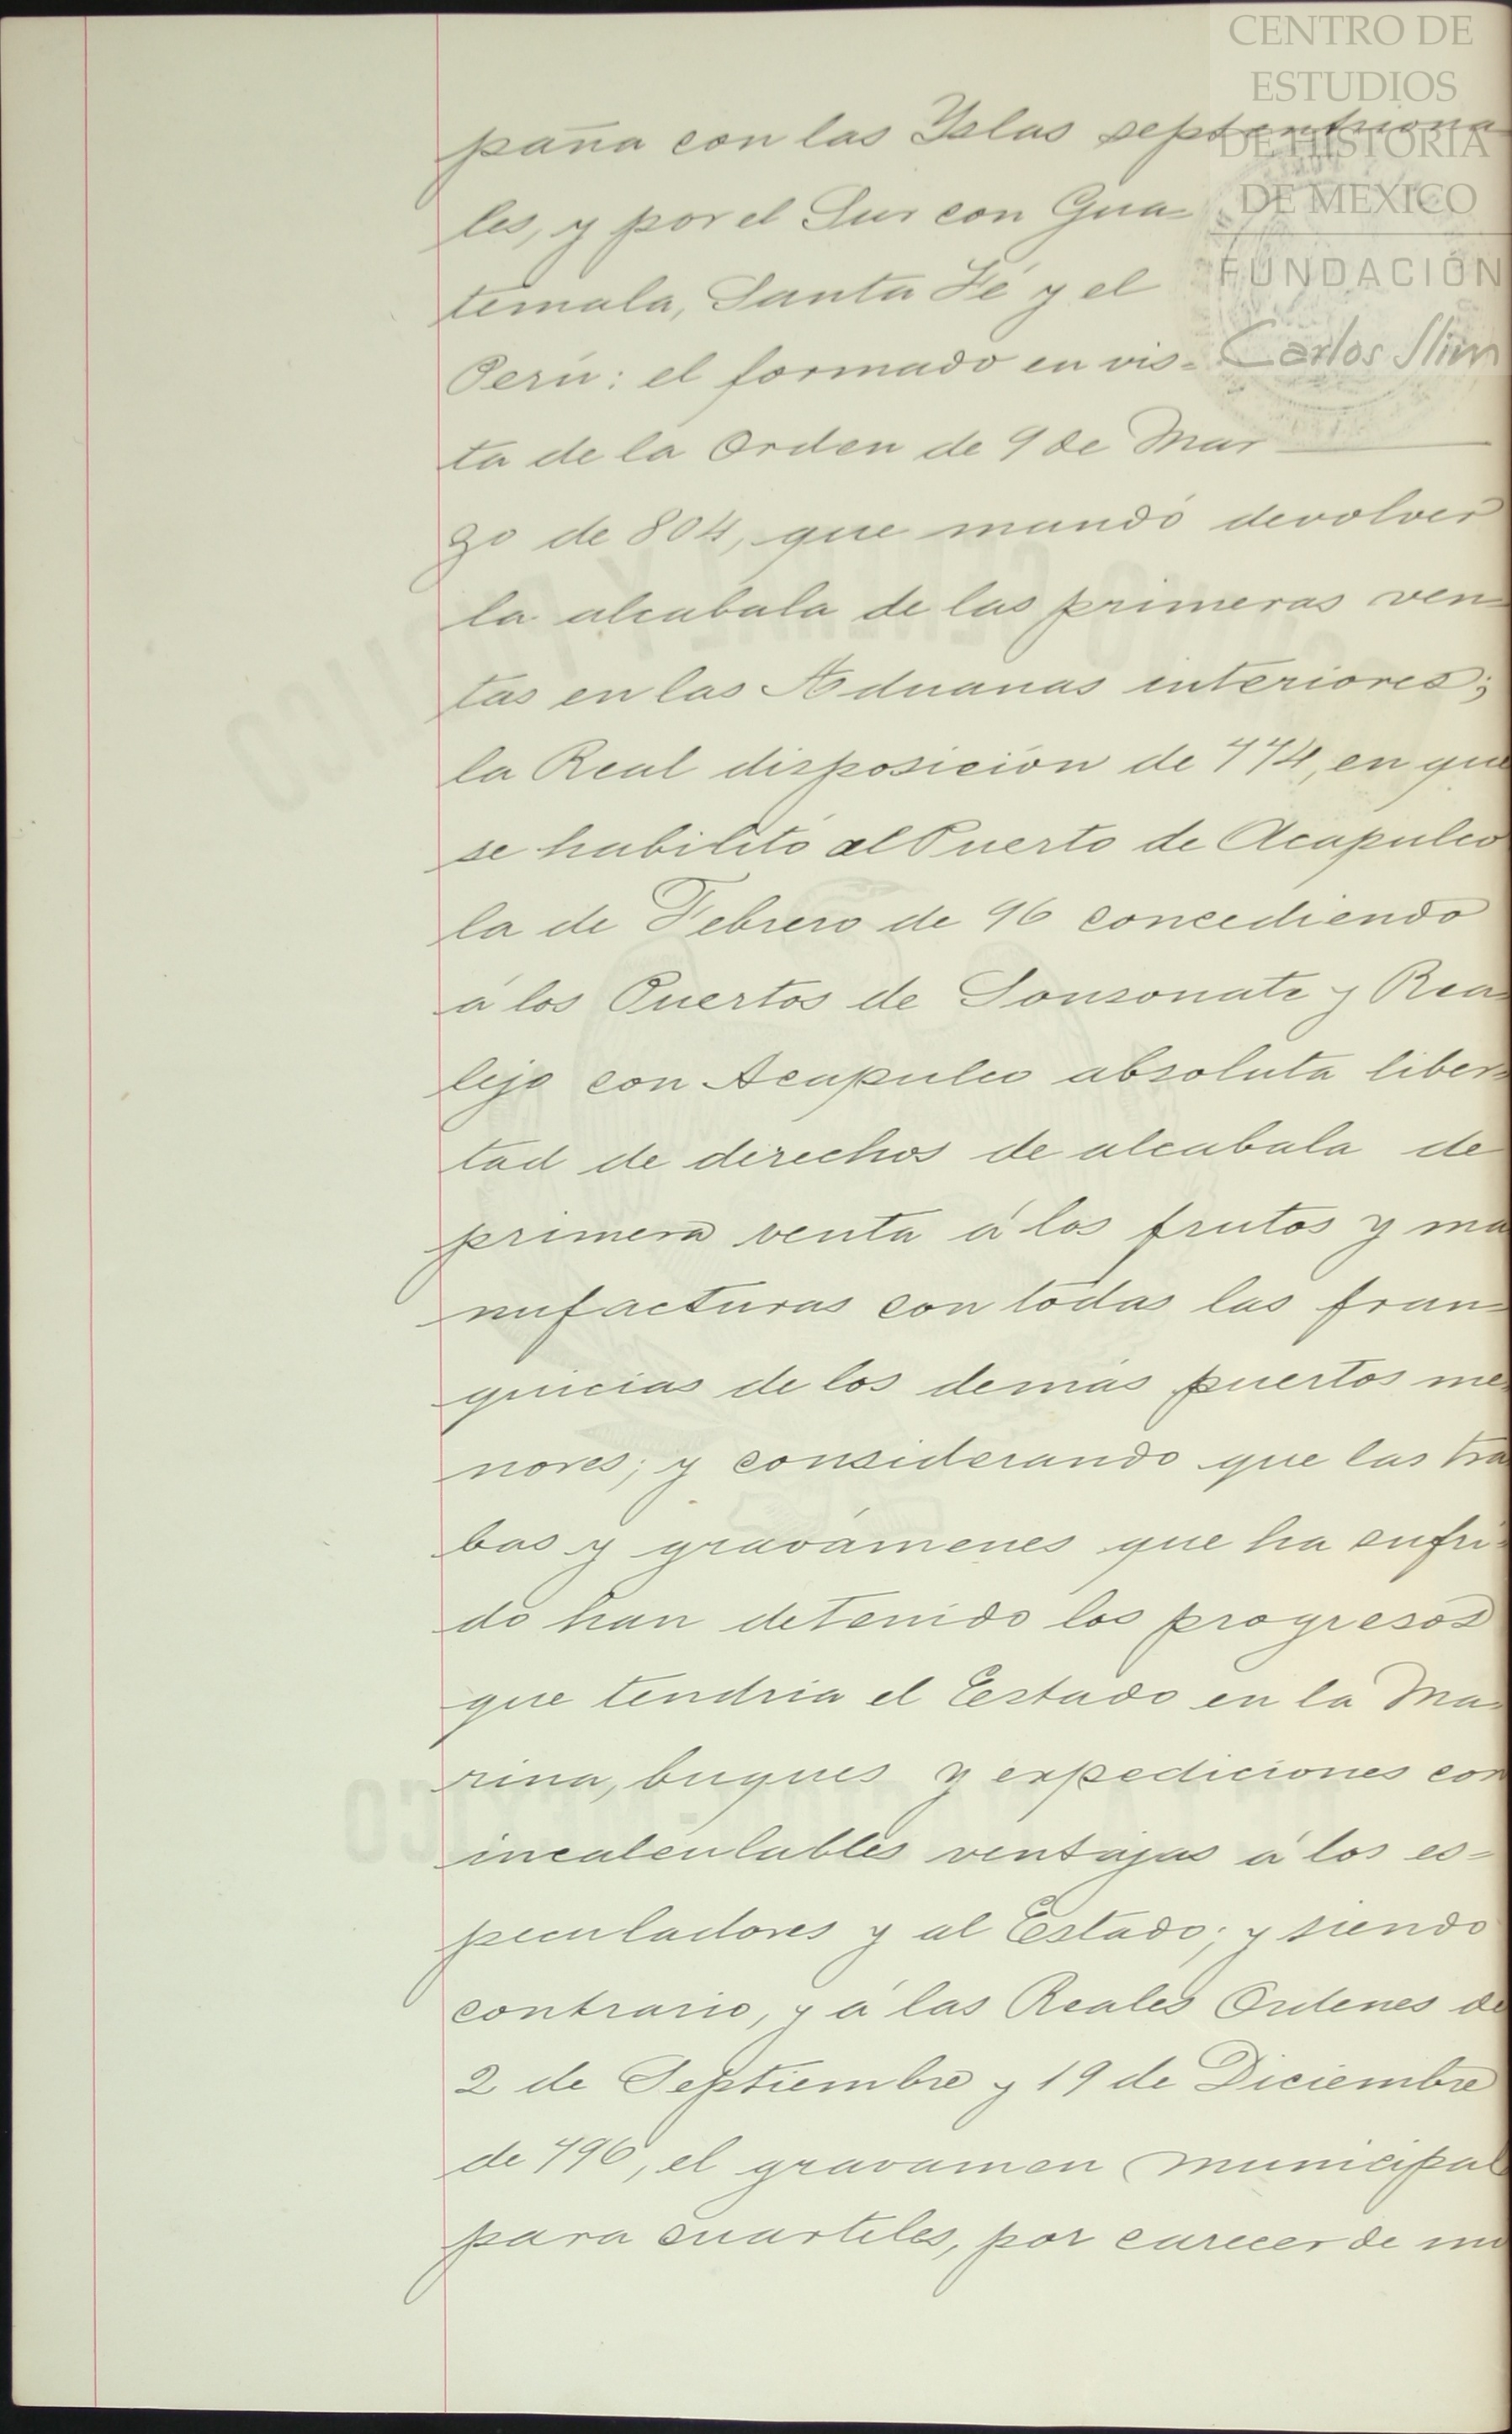 CENTRO DE
ESTUDIOS
DE HISTORIA
DE MEXICO
FUNDACIÓN
Carlos Slim
paña con las Yslas septentriona
les, y por el Sur con Gua=
temala, Santa Fé y el
Perú: el formado en vis=
ta de la Orden de 9 de Mar
zo de 804, que mandó devolver
la alcabala de las primeras ven=
tas en las Aduanas interiores;
la Real disposición de 774, en que
se habilitó al Puerto de Acapulco
la de Febrero de 96 concediendo
á los Puertos de Sonsonate y Rea=
lejo con Acapulco absoluta liber=
tad de derechos de alcabala de
primera venta á los frutos y ma
nufacturas con todas las fran=
quicias de los demás puertos me
nores; y considerando que las tra
bas y gravámenes que ha sufri=
do han detenido los progresos
que tendria el Estado en la Ma=
rina, buques y expediciones con
incalculables ventajas á los es=
peculadores y al Estado; y siendo
contrario, y á las Reales Ordenes de
2 de Septiembre y 19 de Diciembre
de 796, el gravamen municipal
para cuarteles, por carecer de mu